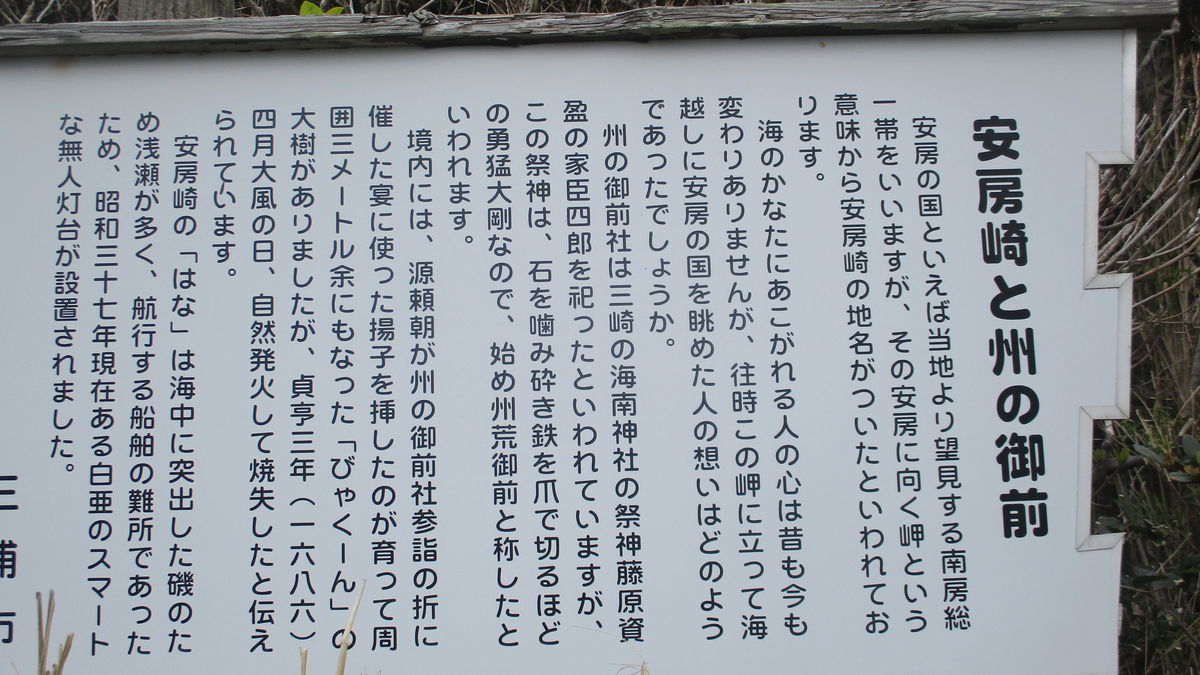 安房崎と州の御前
安房の国といえば当地より望見する南房総
一帯をいいますが、その安房に向く岬という
意味から安房崎の地名がついたといわれてお
ります。
海のかなたにあこがれる人の心は昔も今も
変わりありませんが、往時この岬に立って海
越しに安房の国を眺めた人の想いはどのよう
であったでしょうか。
州の御前社は三崎の海南神社の祭神藤原資
盈の家臣四郎を祀ったといわれていますが、
この祭神は、石を噛み砕き鉄を爪で切るほど
の勇猛大剛なので、始め州荒御前と称したと
いわれます。
境内には、源頼朝が州の御前社参詣の折に
催した宴に使った揚子を挿したのが育って周
囲三メートル余にもなった「びゃくーん」の
大樹がありましたが、貞亨三年（一六八六）
四月大風の日、自然発火して焼失したと伝え
られています。
安房崎の「はな」は海中に突出した磯のた
め浅瀬が多く、航行する船舶の難所であった
ため、昭和三十七年現在ある白亜のスマート
な無人灯台が設置されました。
三浦市